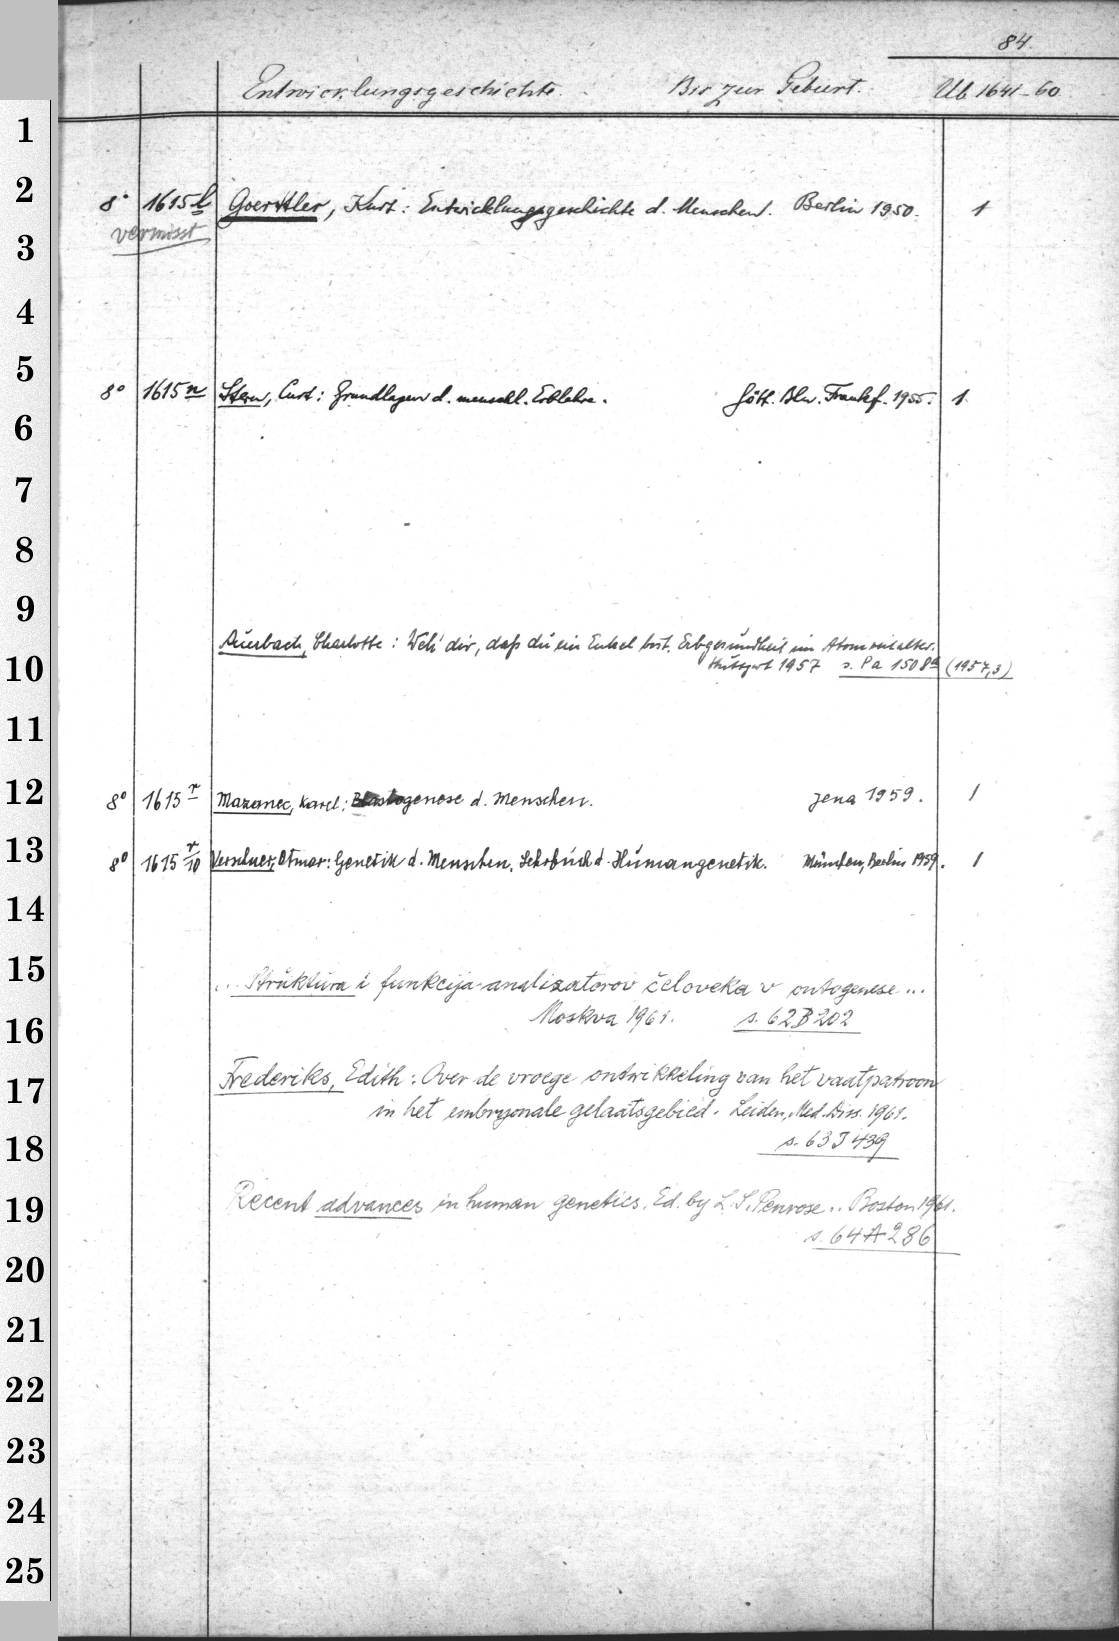 84.
Entwicklungsgeschichte. Bis zur Geburt. Ub 1641-60
1
2
8° 1615 l Goerttler, Kurt: Entwicklungsgeschichte d. Menschen. Berlin 1950. 1
vermisst
3
4
5
8° 1615 n Stern, Curt: Grundlagen d. menschl. Erblehre. Gött. Bln. Frankf. 1955. 1
6
7
8
9
Auerbach, Charlotte: Weh dir, daß du ein Enkel bist. Erbgesundheit im Atomzeitalter.
10
Stuttgart 1957 s. Pa 1508 (1957,3)
11
12
8° 1615 r Mazanec, Karel: Blastogenese d. Menschen. Jena 1959. 1
13
8° 1615 r/10 Verschuer, Otmar: Genetik d. Menschen. Lehrbuch d. Humangenetik. München, Berlin 1959. 1
14
15
... Struktura i funkcija analizatorov čeloveka v ontogenese ...
16
Moskva 1961. s. 62 B 202
17
Frederiks, Edith: Over de vroege ontwikkeling van het vaatpatroon
in het embryonale gelaatsgebied. Leiden, Med. Diss. 1961.
18
s. 63 J 439
19
Recent advances in human genetics. Ed. by L. S. Penrose .. Boston 1961.
s. 64 A 286
20
21
22
23
24
25